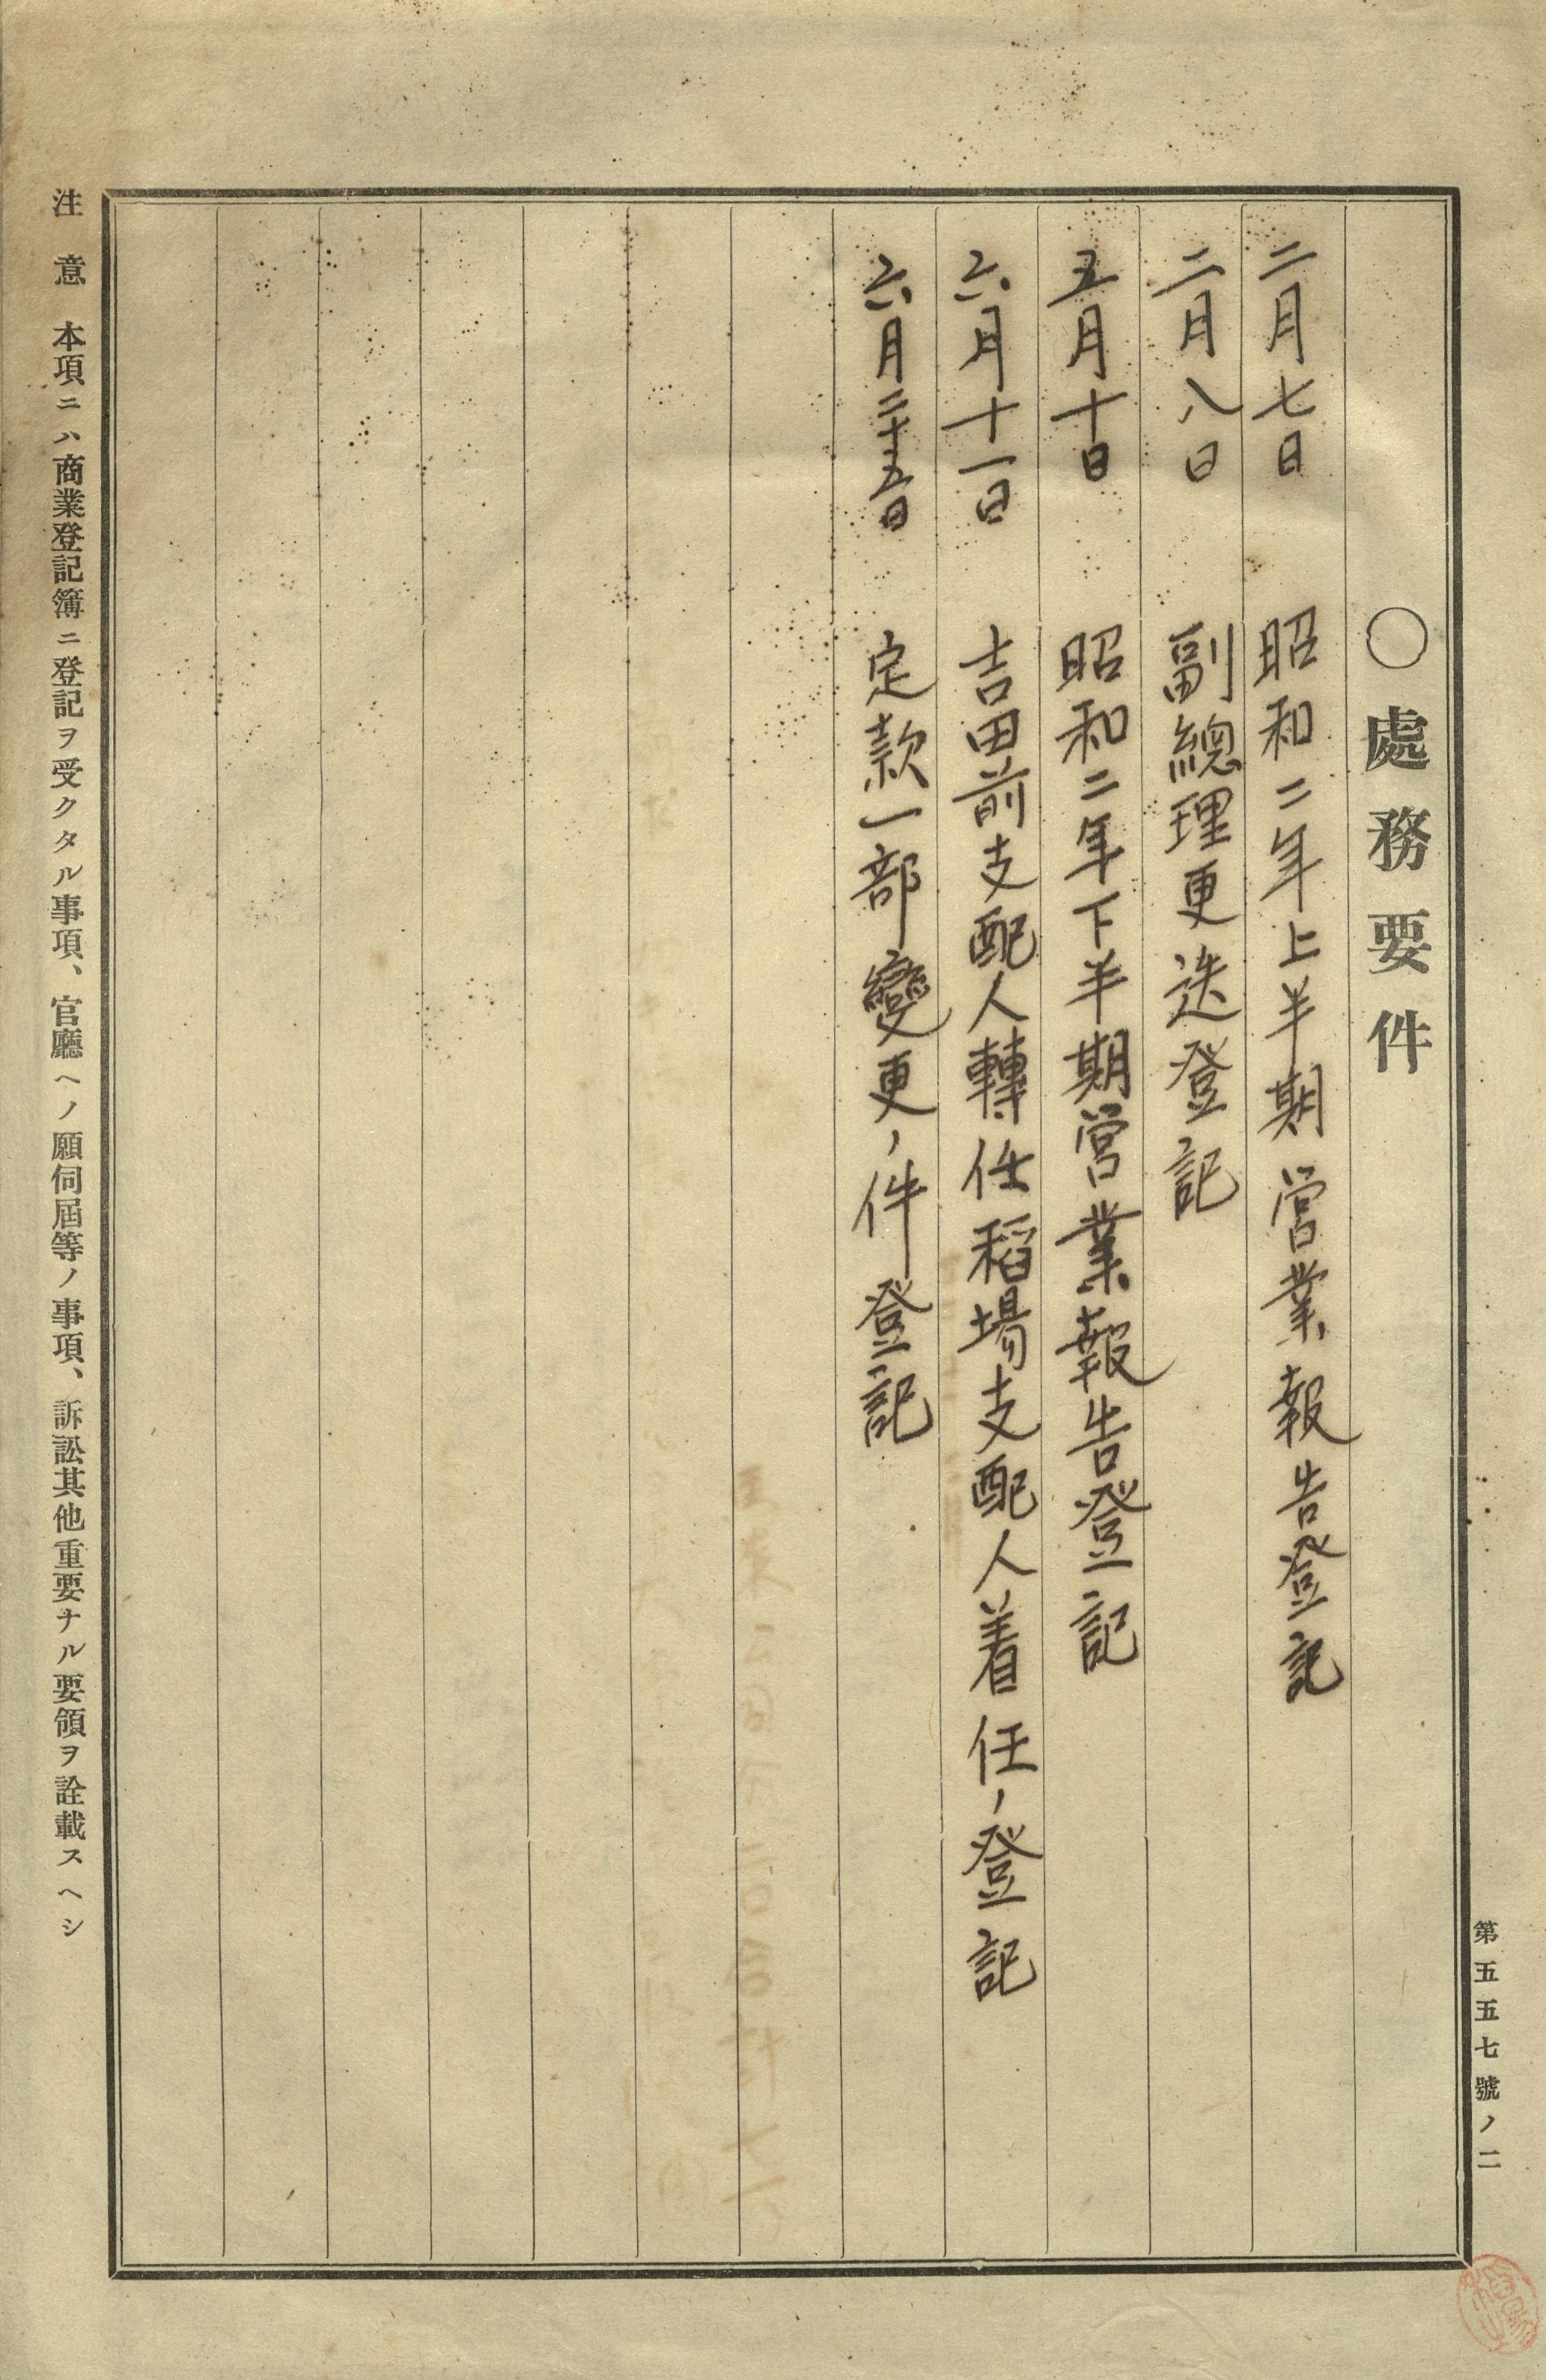 第五五七號ノ二
〇處務要件
二月七日 昭和二年上半期營業報告登記
二月八日 副總理更迭登記
五月十日 昭和二年下半期營業報告登記
六月十一日 吉田前支配人轉任稻場支配人着任ノ登記
六月二十五日 定款一部變更ノ件登記
注意 本項ニハ商業登記簿ニ登記ヲ受クタル事項、官廳ヘノ願伺屆等ノ事項、訴訟其他重要ナル要領ヲ詮載スヘシ